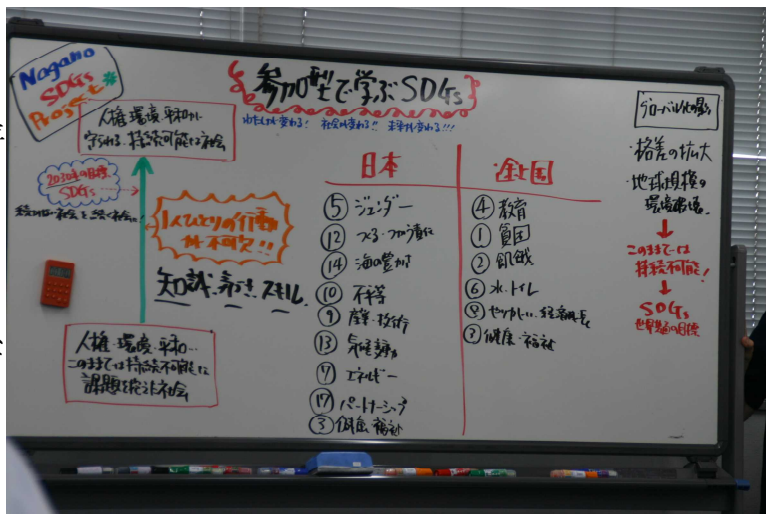 Nagano
SDGs
Project
参加型で学ぶSDGs
わたしが変わる! 社会が変わる!! 未来が変わる!!!
人権・環境・平和が
守られる、持続可能な社会
2030年の目標
SDGs
1人ひとりの行動
が不可欠!!
知識・スキル
人権・環境・平和…
このままでは持続不可能な
課題を抱えた社会
日本
⑤ ジェンダー
⑫ つくる・つかう責任
⑭ 海の豊かさ
⑩ 不平等
⑨ 産業・技術
⑬ 気候変動
⑦ エネルギー
⑰ パートナーシップ
③ 健康・福祉
途上国
④ 教育
① 貧困
② 飢餓
⑥ 水・トイレ
⑧ 経済成長
③ 健康・福祉
グローバル化の影
・格差の拡大
・地球規模の
環境破壊
↓
このままでは
持続不可能!
↓
SDGs
世界共通の目標